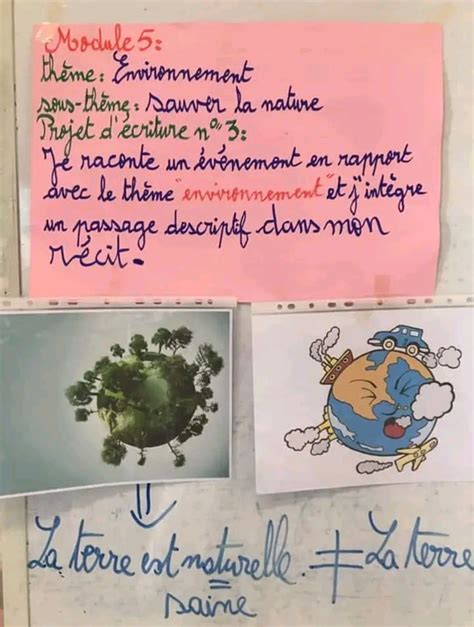 Module 5:
thème: Environnement
sous-thème: sauver la nature
Projet d'écriture n° 3:
Je raconte un événement en rapport
avec le thème "environnement" et j'intègre
un passage descriptif dans mon
récit.
⇓
La terre est naturelle. ≠ La terre
=
saine